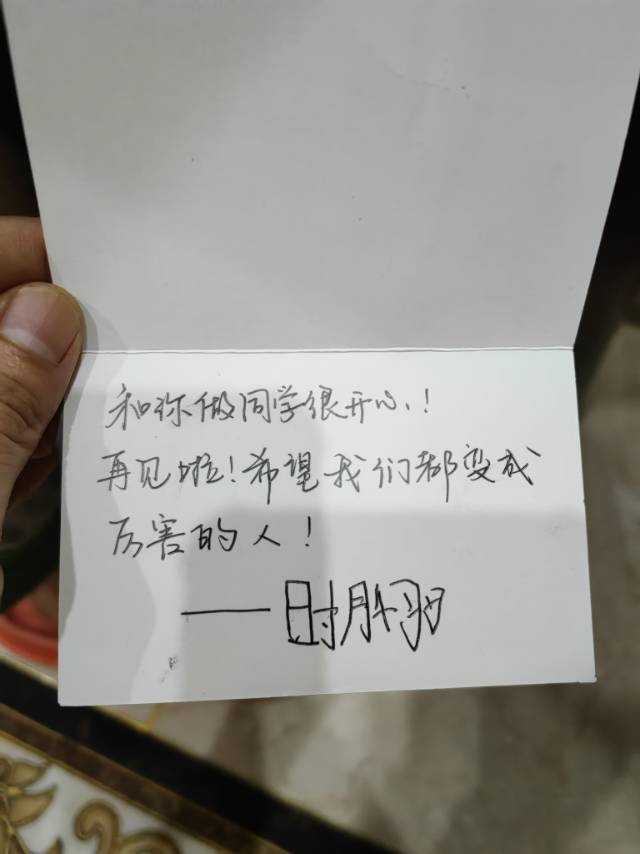 和你做同学很开心!
再见啦!希望我们都变成
厉害的人!
——时